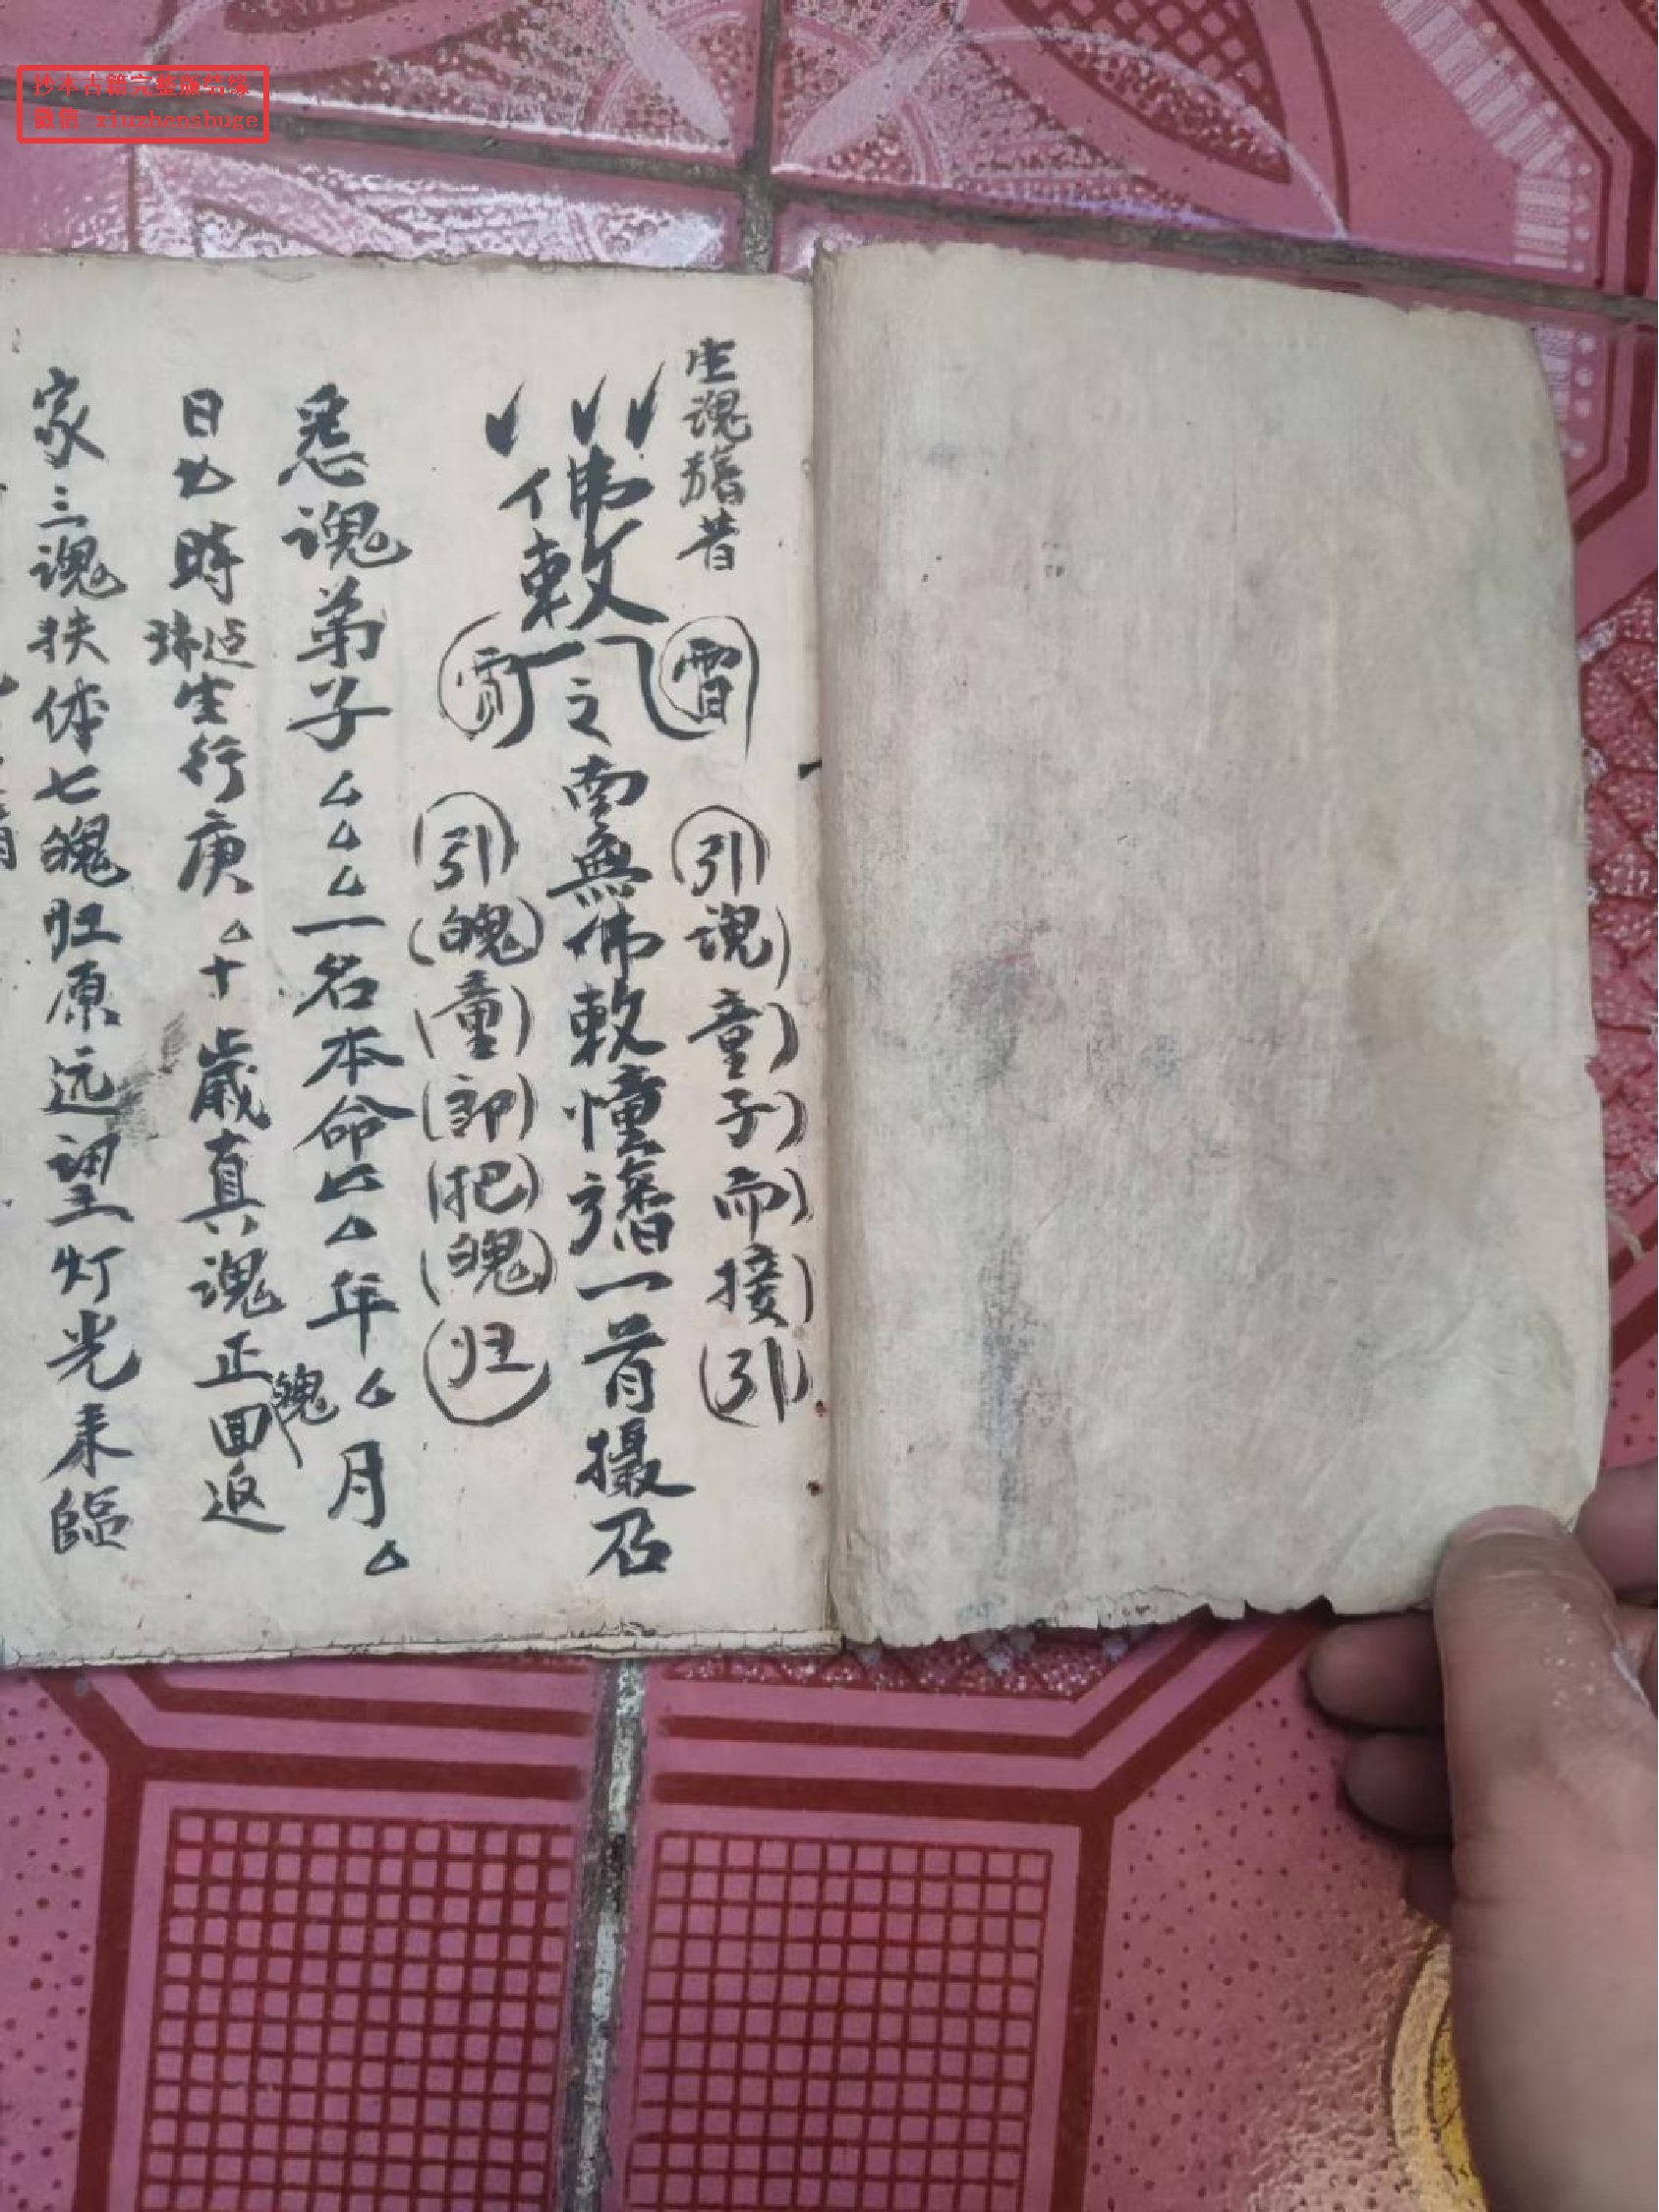 抄本古籍完整版结缘
微信 xiuzhenshuge
生魂旛昔
引魂童子而接引
佛敕
南無佛敕憧旛一首摄召
引魄童郎把魄归
魂弟子厶厶厶一名本命厶厶年厶月厶
日 時 生行庚厶十歲真魂正魄回返
家三魂扶体七魄归原远望灯光来臨